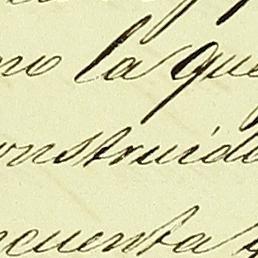 no la que
onstruido
ncuenta